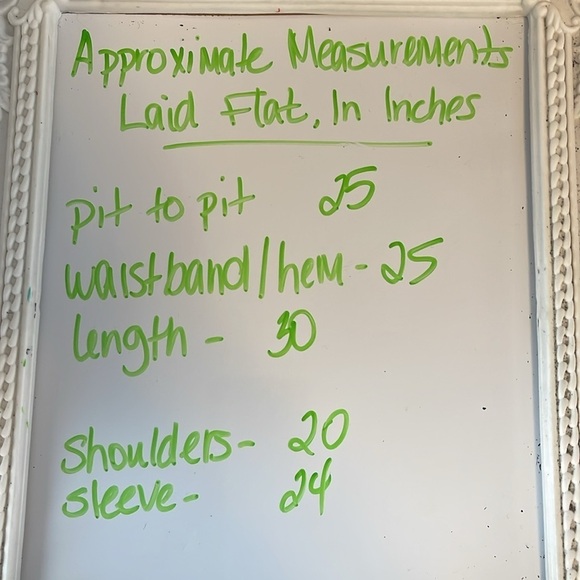 Approximate Measurements
Laid Flat, In Inches
pit to pit 25
waistband/hem - 25
length - 30
shoulders - 20
sleeve - 24